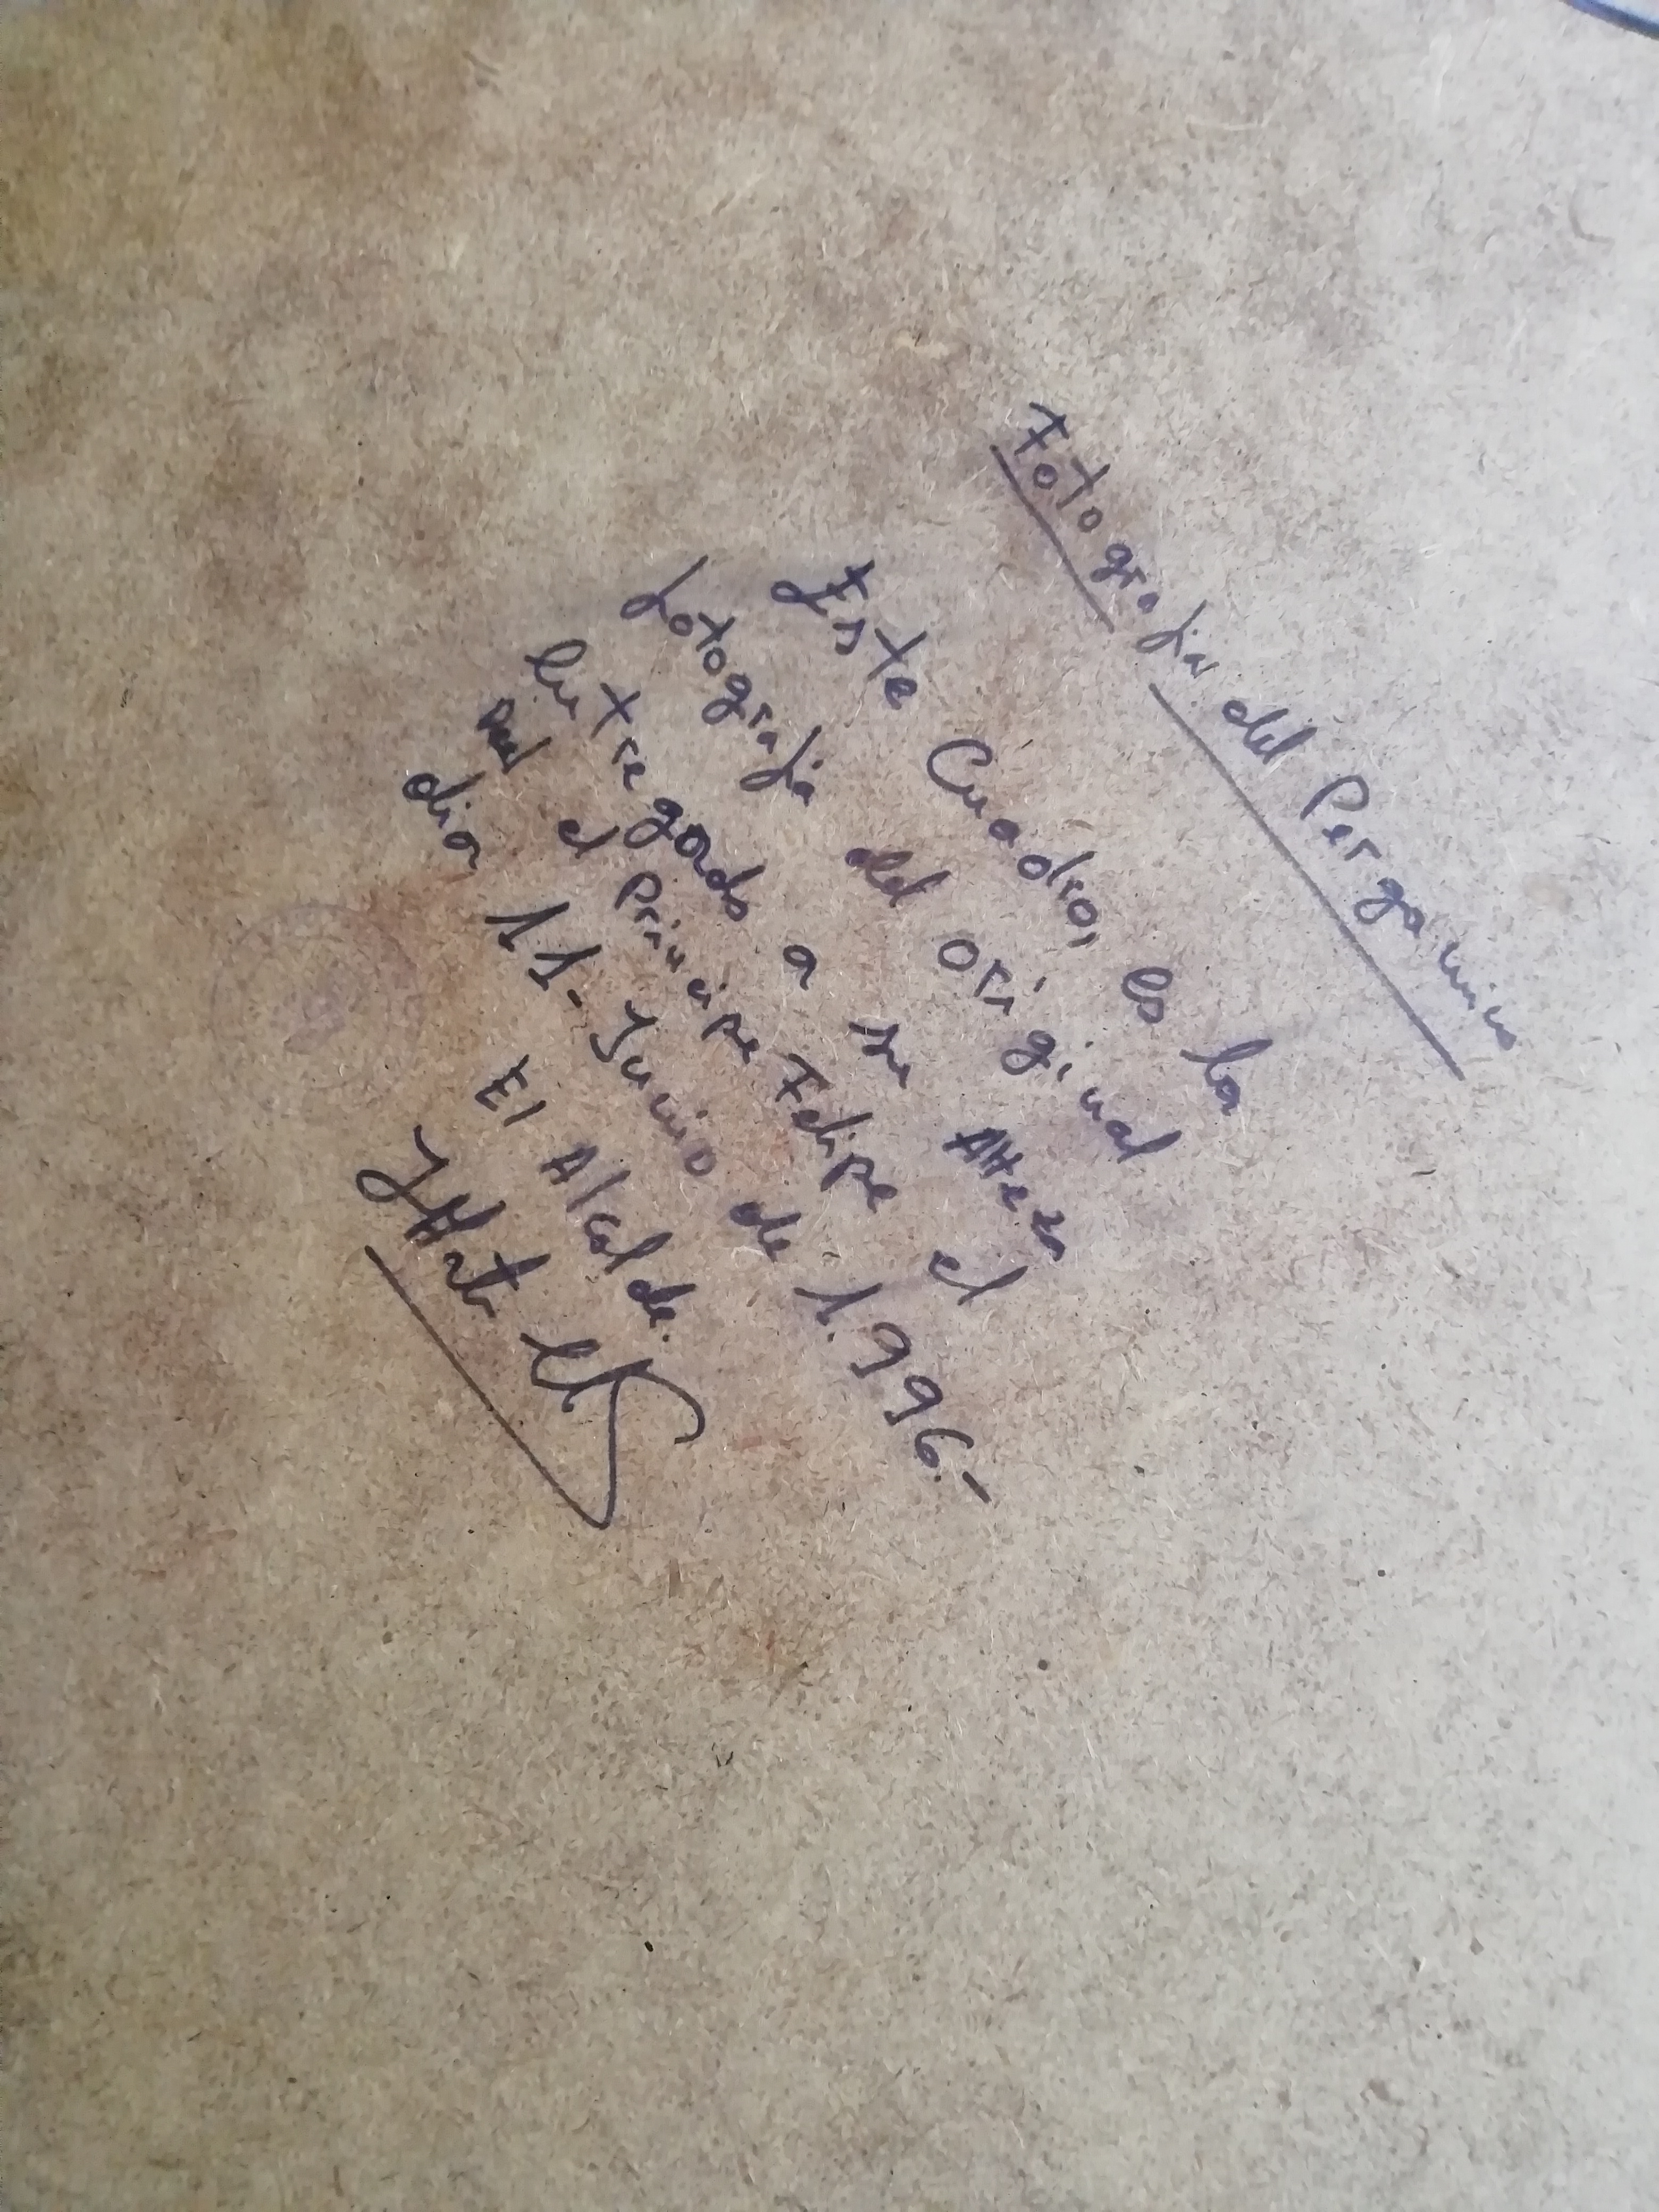 Fotografia del Pergamino
Este Cuadro, es la
fotografia del original
entregado a su Alteza
Real el Principe Felipe el
dia 11-Junio de 1.996.-
El Alcalde.